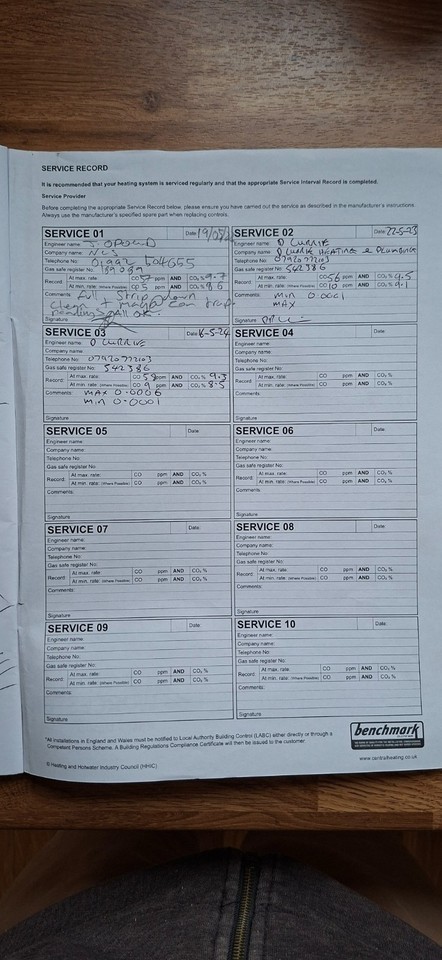 SERVICE RECORD
It is recommended that your heating system is serviced regularly and that the appropriate Service Interval Record is completed.
Service Provider
Before completing the appropriate Service Record below, please ensure you have carried out the service as described in the manufacturer's instructions.
Always use the manufacturer's specified spare part when replacing controls.
SERVICE 01 Date: 19/07/
Engineer name:
Company name: NCS
Telephone No: 01992 604655
Gas safe register No: 189089
Record: At max. rate: CO 57 ppm AND CO₂ % 9.7
At min. rate: (Where Possible) CO 5 ppm AND CO₂ % 8.6
Comments: Full Strip down
clean + magna con trap
readings all ok.
Signature
SERVICE 02 Date: 22-5-23
Engineer name: D CURRIE
Company name: D CURRIE HEATING & PLUMBING
Telephone No: 07920772103
Gas safe register No: 542386
Record: At max. rate: CO 56 ppm AND CO₂ % 9.5
At min. rate: (Where Possible) CO 10 ppm AND CO₂ % 9.1
Comments: MIN 0.0001
MAX
Signature
SERVICE 03 Date: 16-5-24
Engineer name: D CURRIE
Company name:
Telephone No: 07920772103
Gas safe register No: 542386
Record: At max. rate: CO 58 ppm AND CO₂ % 9.3
At min. rate: (Where Possible) CO 9 ppm AND CO₂ % 8.5
Comments: MAX 0.0006
MIN 0.0001
Signature
SERVICE 04 Date:
Engineer name:
Company name:
Telephone No:
Gas safe register No:
Record: At max. rate: CO ppm AND CO₂ %
At min. rate: (Where Possible) CO ppm AND CO₂ %
Comments:
Signature
SERVICE 05 Date:
Engineer name:
Company name:
Telephone No:
Gas safe register No:
Record: At max. rate: CO ppm AND CO₂ %
At min. rate: (Where Possible) CO ppm AND CO₂ %
Comments:
Signature
SERVICE 06 Date:
Engineer name:
Company name:
Telephone No:
Gas safe register No:
Record: At max. rate: CO ppm AND CO₂ %
At min. rate: (Where Possible) CO ppm AND CO₂ %
Comments:
Signature
SERVICE 07 Date:
Engineer name:
Company name:
Telephone No:
Gas safe register No:
Record: At max. rate: CO ppm AND CO₂ %
At min. rate: (Where Possible) CO ppm AND CO₂ %
Comments:
Signature
SERVICE 08 Date:
Engineer name:
Company name:
Telephone No:
Gas safe register No:
Record: At max. rate: CO ppm AND CO₂ %
At min. rate: (Where Possible) CO ppm AND CO₂ %
Comments:
Signature
SERVICE 09 Date:
Engineer name:
Company name:
Telephone No:
Gas safe register No:
Record: At max. rate: CO ppm AND CO₂ %
At min. rate: (Where Possible) CO ppm AND CO₂ %
Comments:
Signature
SERVICE 10 Date:
Engineer name:
Company name:
Telephone No:
Gas safe register No:
Record: At max. rate: CO ppm AND CO₂ %
At min. rate: (Where Possible) CO ppm AND CO₂ %
Comments:
Signature
*All installations in England and Wales must be notified to Local Authority Building Control (LABC) either directly or through a
Competent Persons Scheme. A Building Regulations Compliance Certificate will then be issued to the customer.
benchmark
www.centralheating.co.uk
© Heating and Hotwater Industry Council (HHIC)